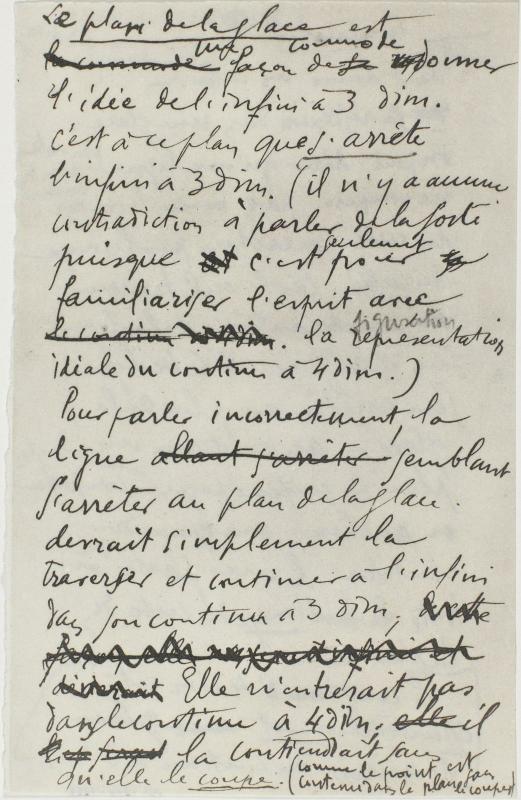 Le plan de la glace est
la commode une façon commode de donner
l'idée de l'infini à 3 dim.
c'est à ce plan que s'arrête
l'infini à 3 dim. (il n'y a aucune
contradiction à parler de la sorte
puisque c'est seulement pour
familiariser l'esprit avec
le continu . la figuration représentation
idéale du continu à 4 dim.)
Pour parler incorrectement, la
ligne allant s'arrêter semblant
s'arrêter au plan de la glace.
devrait simplement la
traverser et continuer à l'infini
dans son continu à 3 dim,
Elle n'entrerait pas
dans le continu à 4 dim. elle il
la contiendrait sans
qu'elle le coupe. (comme le point est
contenu dans le plan sans le couper)